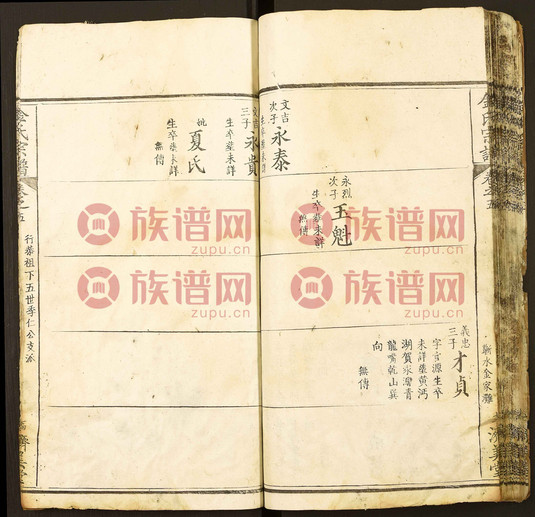 金氏宗譜
卷之五
蘄水金家灘
濟美堂
文吉次子
永泰
生卒葬未詳
文吉三子
永貴
生卒葬未詳
妣
夏氏
生卒葬未詳
無傳
永烈次子
玉魁
生卒葬未詳
無傳
義忠三子
才貞
字宗源生卒
未詳葬黃沔
湖賀家灣青
龍嘴乾山巽
向
無傳
氏宗譜
卷之五
行恭祖下五世季仁公支派
族谱网
zupu.cn
族谱网
zupu.cn
族谱网
zupu.cn
族谱网
zupu.cn